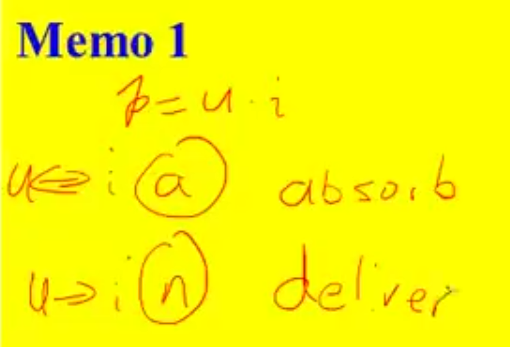 Memo 1
p=u·i
u⇔i a absorb
u→i n deliver